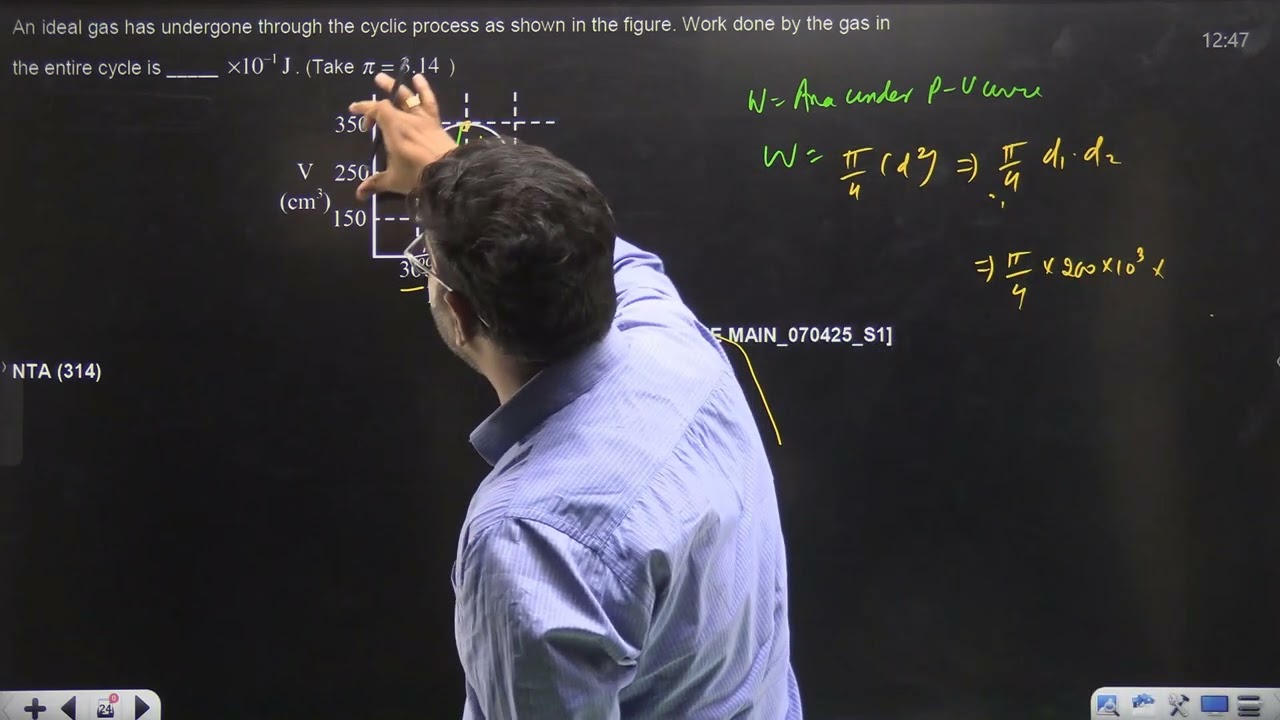 An ideal gas has undergone through the cyclic process as shown in the figure. Work done by the gas in
12:47
the entire cycle is _____ ×10⁻¹ J. (Take π = 3.14 )
W = Area under P-V curve
350
V 250
(cm³)
150
W = π/4 (d²) ⇒ π/4 d₁·d₂
⇒ π/4 × 200×10³ ×
MAIN_070425_S1]
NTA (314)
24